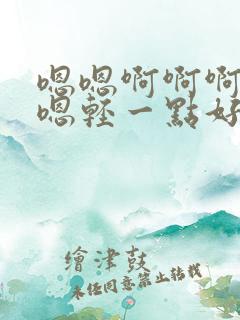 嗯嗯啊啊啊
嗯輕一點好
繪津鼓
未經同意禁止轉載